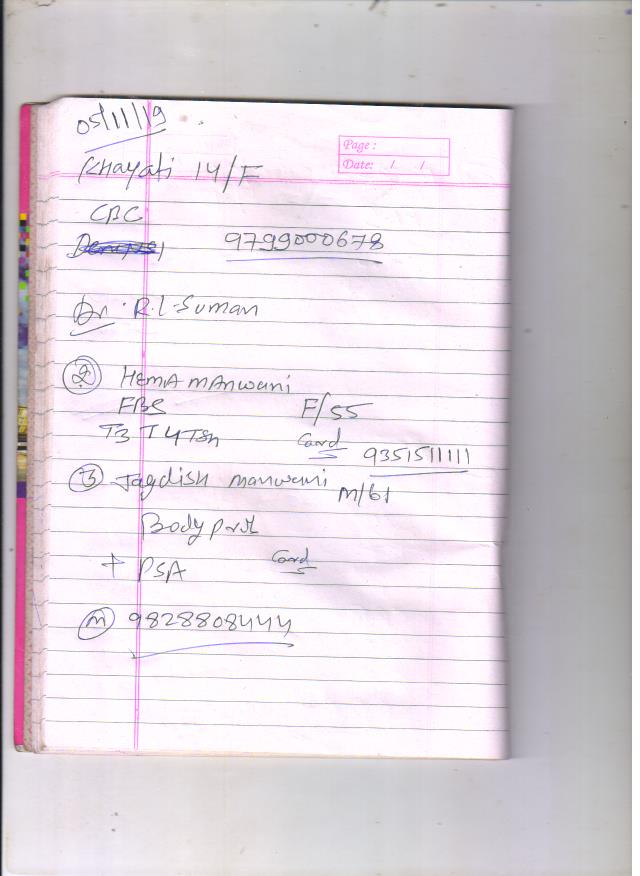 05/11/19
Page :
Date: / /
Khayati 14/F
CBC
9799000678
Dr. R.L. Suman
2 Hema manwani
FBS F/55
T3 T4 Tsh Card 9351511111
3 Jagdish manwani m/61
Body prof
+ PSA Card
m 9828808444